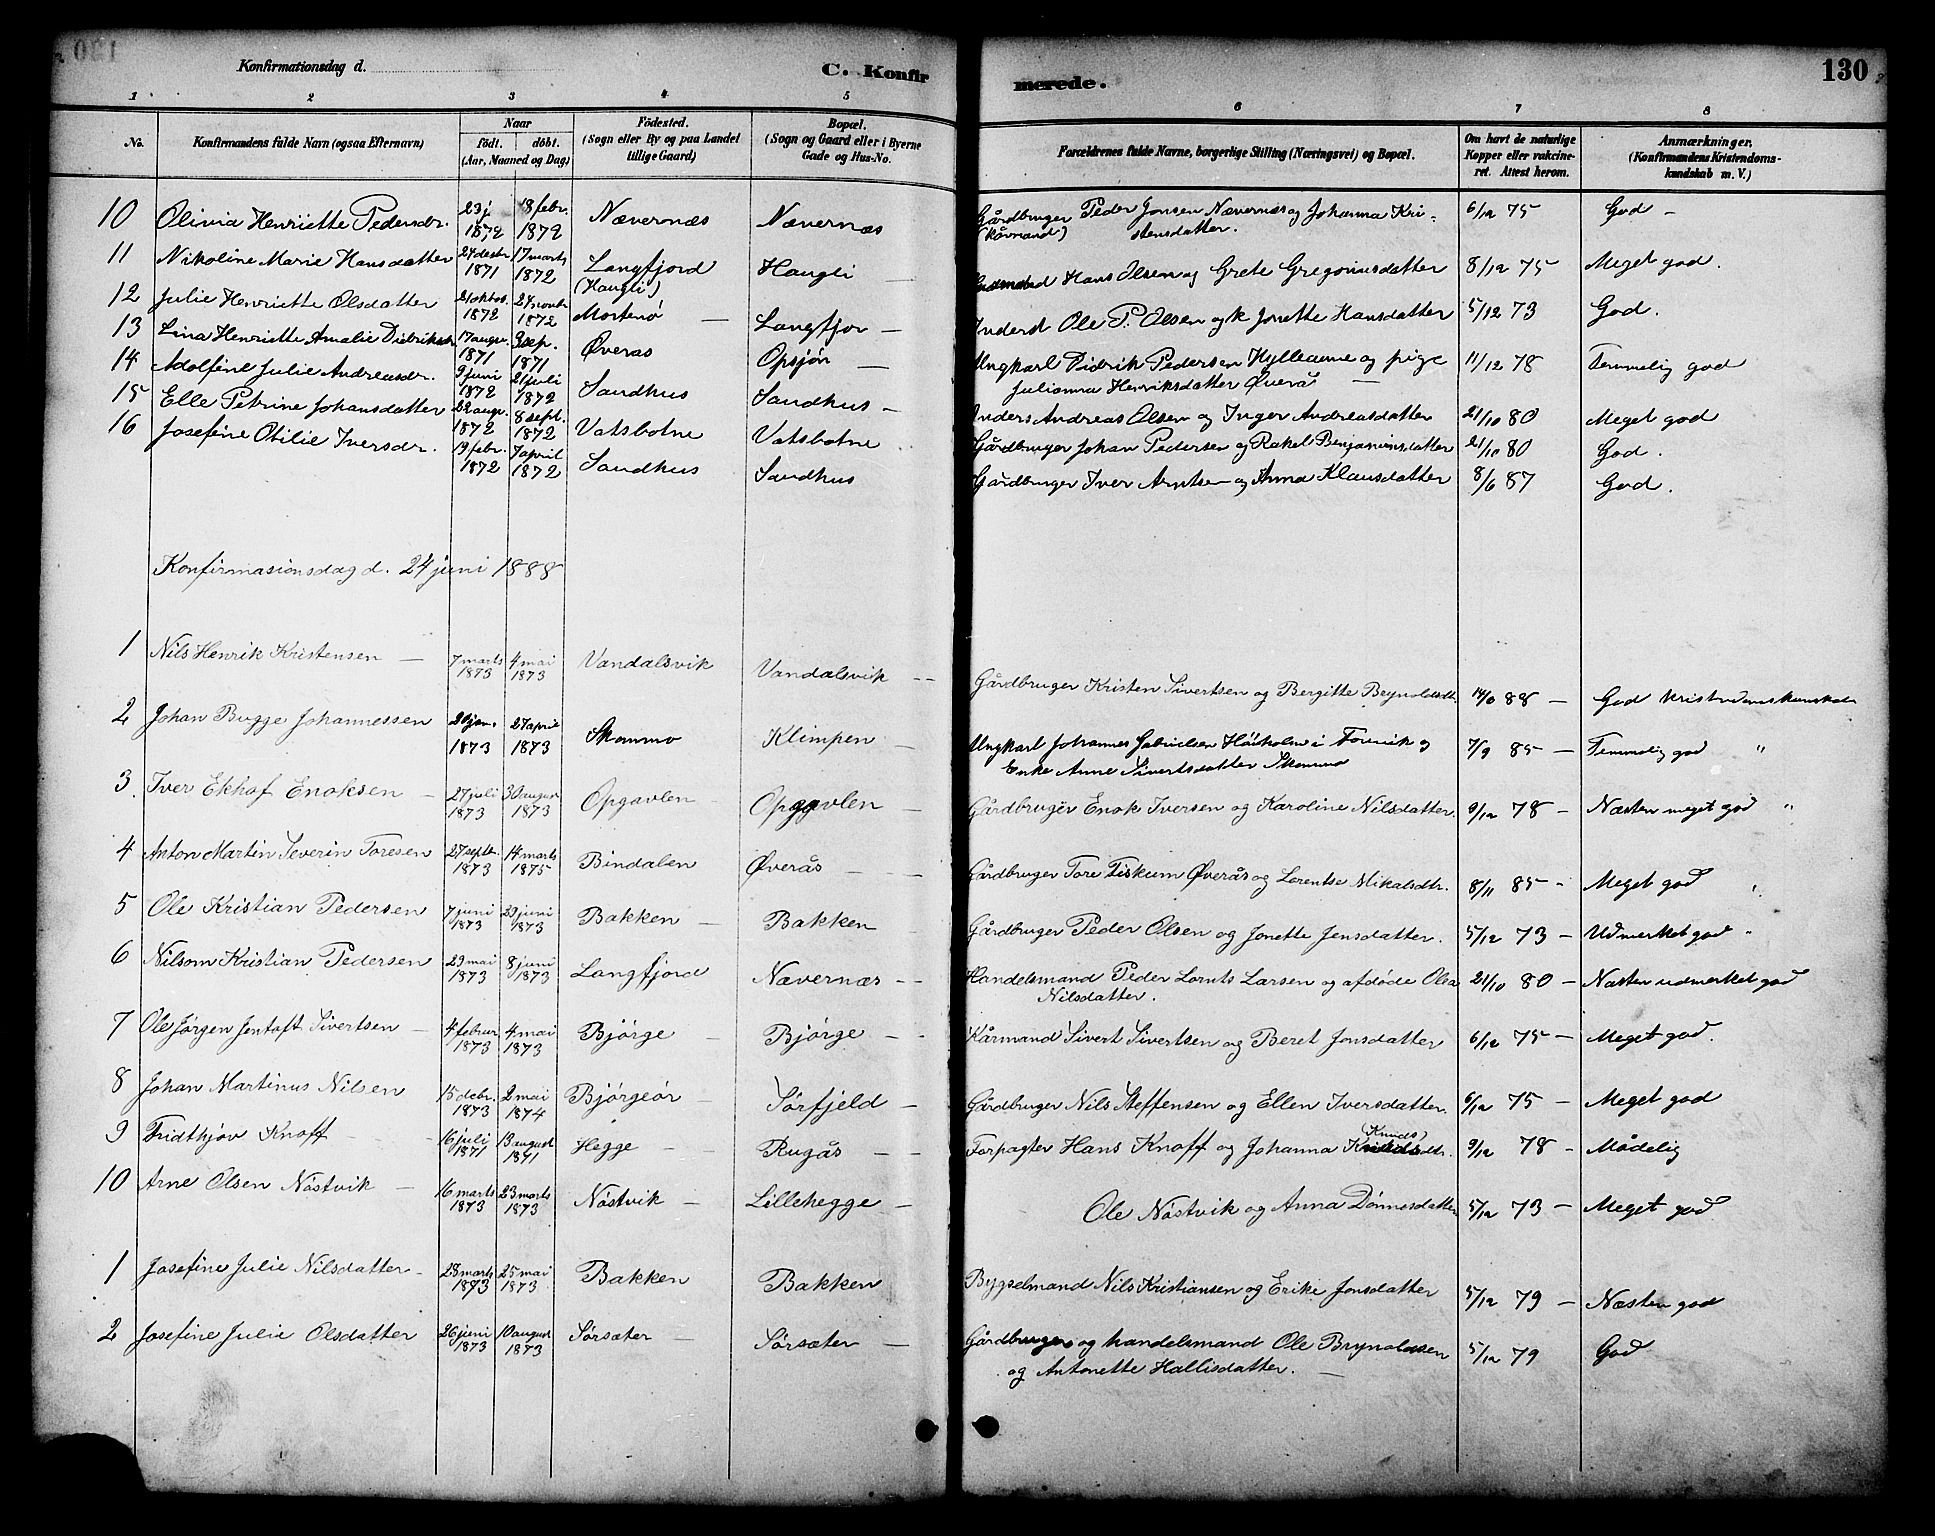 130
Konfirmationsdag d.
C. Konfirmerede.
130
1 2 3 4 5 6 7 8
No.
Konfirmandens fulde Navn (ogsaa Efternavn)
Naar
födt. döbt.
(Aar, Maaned og Dag)
Födested.
(Sogn eller By og paa Landet
tillige Gaard)
Bopæl.
(Sogn og Gaard eller i Byerne
Gade og Hus-No.
Forældrenes fulde Navne, borgerlige Stilling (Næringsvei) og Bopæl.
Om havt de naturlige
Kopper eller vakcine-
ret. Attest herom.
Anmærkninger.
(Konfirmandens Kristendoms-
kundskab m. V.)
10 Olivia Henriette Pedersdr. 23 j 1872 18 febr. 1872 Nævernæs Nævernæs Gårdbruger Peder Jonsen Nævernæs og Johanna Kri-
(kårmand) stensdatter. 6/12 75 God -
11 Nikoline Marie Hansdatter 24 desbr 1871 17 marts 1872 Langfjord (Haugli) Haugli Hans Olsen og Grete Gregoriusdatter 8/12 75 Meget god.
12 Julie Henriette Olsdatter 21 oktob. 1872 24 novbr 1872 Mortenö Langfjor Inderst Ole P. Olsen og k Jonette Hansdatter 5/12 73 God.
13 Lina Henriette Amalie Didriksdr 17 augu. 1871 3 sep. 1871 Øveras Opsjøn Ungkarl Didrik Pedersen Hylleaune og pige
Julianna Henriksdatter Øverå 11/12 78 Temmelig god
14 Adolfine Julie Andreasdr. 9 juni 1872 21 juli 1872 Sandhus Sandhus Anders Andreas Olsen og Inger Andreasdatter 21/10 80 Meget god
15 Elle Petrine Johansdatter 22 augu. 1872 8 sept. 1872 Vatsbotne Vatsbotne Gårdbruger Johan Pedersen og Rakel Benjaminsdatter 21/10 80 God.
16 Josefine Otilie Iversdr. 19 febr. 1872 7 april 1872 Sandhus Sandhus Gårdbruger Iver Arntsen og Anna Klausdatter 8/6 87 God.
Konfirmasionsdag d. 24 juni 1888
1 Nils Henrik Kristensen 7 marts 1873 4 mai 1873 Vandalsvik Vandalsvik Gårdbruger Kristen Sivertsen og Bergitte 88 God Kristendomskunskab
2 Johan Bugge Johannessen 1873 27 april 1873 Skommo Klimpen Ungkarl Johannes Gabrielsen Höiholm i og
Enke Anne Sivertsdatter Skommo 7/9 85 Temmelig god "
3. Iver Ekhof Enoksen 27 juli 1873 30 august 1873 Opgavlen Opgavlen Gårdbruger Enok Iversen og Karoline Nilsdatter. 9/12 78 Næsten meget god "
4 Anton Martin Severin Toresen 27 septr. 1873 14 marts 1875 Bindalen Øverås Gårdbruger Tore Fiskum Øverås og Lorentse Mikalsdtr. 8/11 85 Meget god
5 Ole Kristian Pedersen 7 juni 1873 29 juni 1873 Bakken Bakken Gårdbruger Peder Olsen og Jonette Jensdatter. 5/12 73 Udmerket god "
6 Nilsom Kristian Pedersen 29 mai 1873 8 juni 1873 Langfjord Nævernæs Handelsmand Peder Lornts Larsen og afdöde Olea
Nilsdatter. 21/10 80 Næsten udmerket god
7 Ole Jørgen Jentoft Sivertsen 4 februr 1873 4 mai 1873 Bjørge Bjørge Kårmand Sivert Sivertsen og Beret Jonsdatter 6/12 75 Meget god.
8 Johan Martinus Nilsen 15 debr. 1873 2 mai 1874 Bjørgeör Sørfjeld Gårdbruger Nils Steffensen og Ellen Iversdatter. 6/12 75 Meget god
9 Fridthjov Knoff 16 juli 1871 13 august 1871 Hegge Rugås Forpagter Hans Knoff og Johanna (Knuds) 9/12 78 Mådelig
10 Arne Olsen Nöstvik 16 marts 1873 23 marts 1873 Nöstvik Lillehegge Ole Nöstvik og Anna Dönnesdatter 5/12 73 Meget god
1 Josefine Julie Nilsdatter 28 marts 1873 25 mai 1873 Bakken Bakken Bygselmand Nils Kristiansen og Erike Jonsdatter 5/12 79 Næsten god
2 Josefine Julie Olsdatter 26 juni 1873 10 august 1873 Sörsæter Sörsæter Gårdbruger og handelsmand Ole Brynolsen
og Antonette Hallisdatter. 5/12 79 God